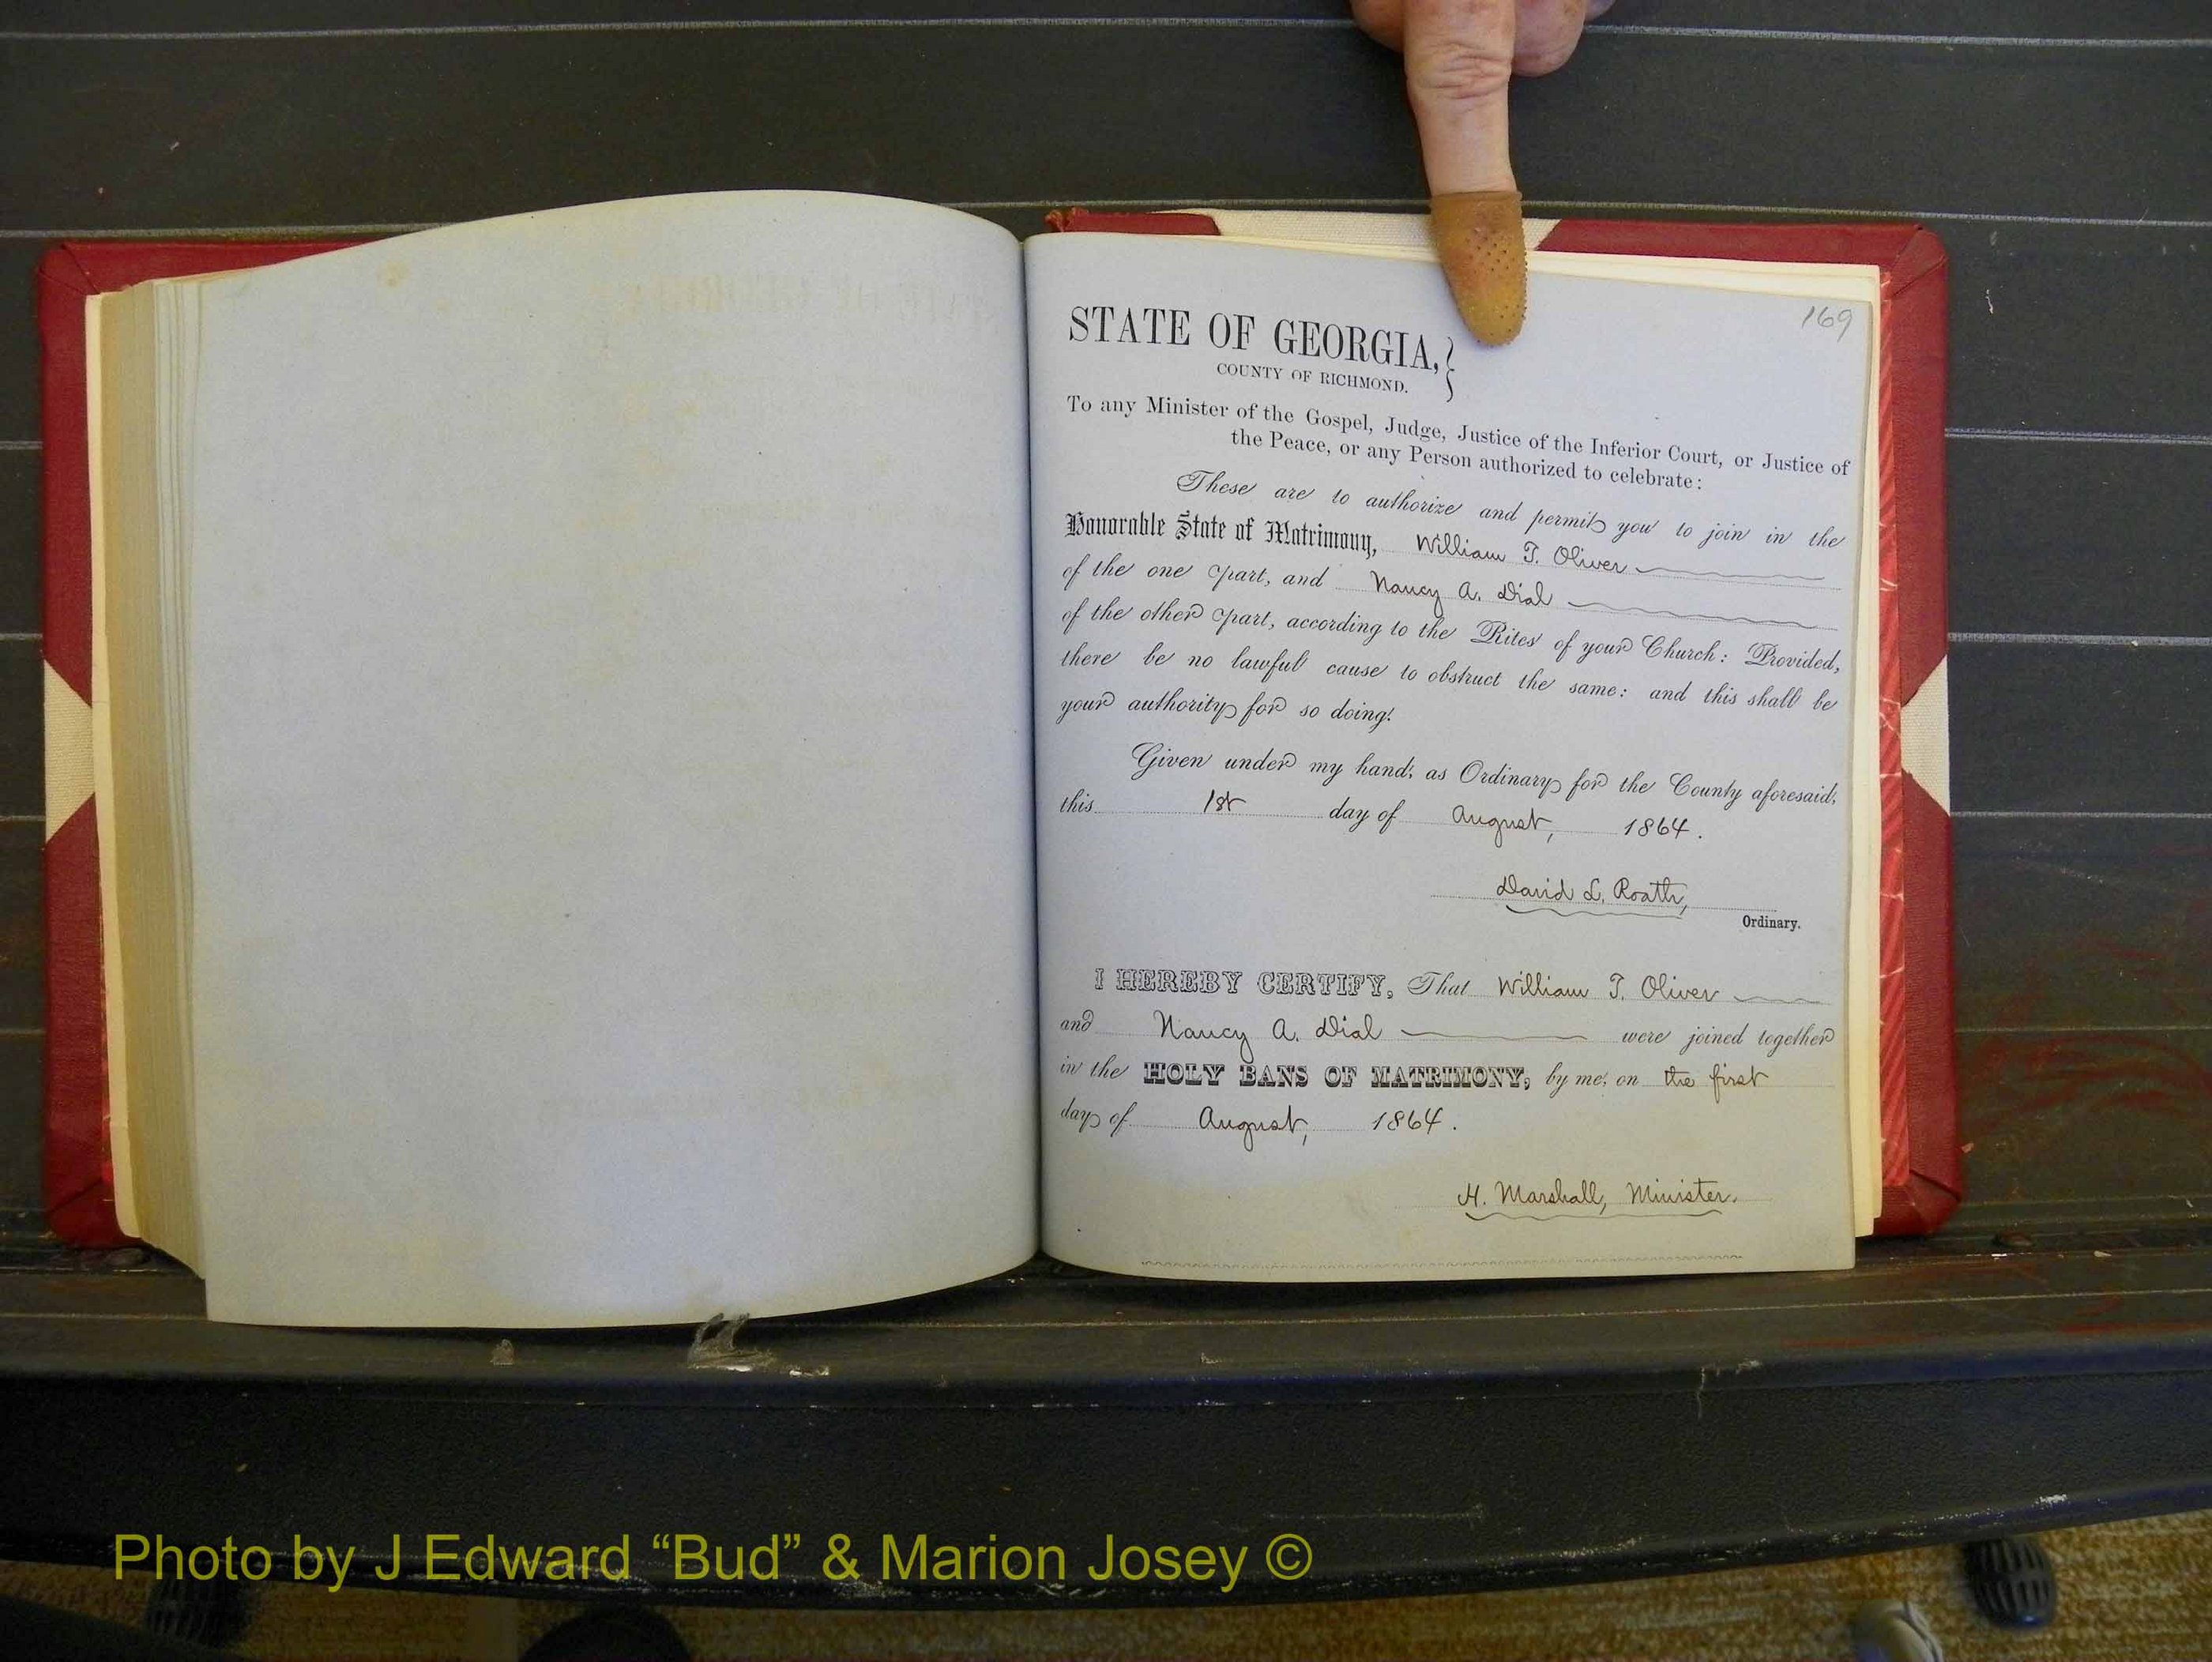 169
STATE OF GEORGIA,
COUNTY OF RICHMOND.
To any Minister of the Gospel, Judge, Justice of the Inferior Court, or Justice of
the Peace, or any Person authorized to celebrate:
These are to authorize and permit you to join in the
Honorable State of Matrimony, William T. Oliver
of the one part, and Nancy A. Dial
of the other part, according to the Rites of your Church: Provided,
there be no lawful cause to obstruct the same: and this shall be
your authority for so doing.
Given under my hand, as Ordinary for the County aforesaid,
this 1st day of August, 1864.
David L. Roath,
Ordinary.
I HEREBY CERTIFY, That William T. Oliver
and Nancy A. Dial were joined together
in the HOLY BANS OF MATRIMONY, by me, on the first
day of August, 1864.
H. Marshall, Minister.
Photo by J Edward “Bud” & Marion Josey ©